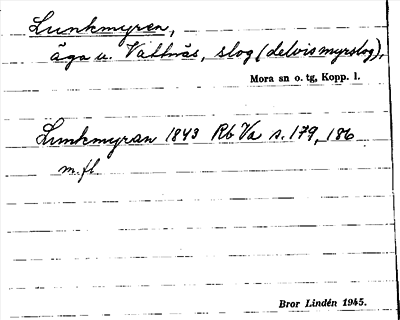 Lunkmyren,
äga u. Vattnäs, slog (delvis myrslog).
Mora sn o. tg, Kopp. l.
Lunkmyran 1843 Rb Va s. 179, 186
m. fl.
Bror Lindén 1945.